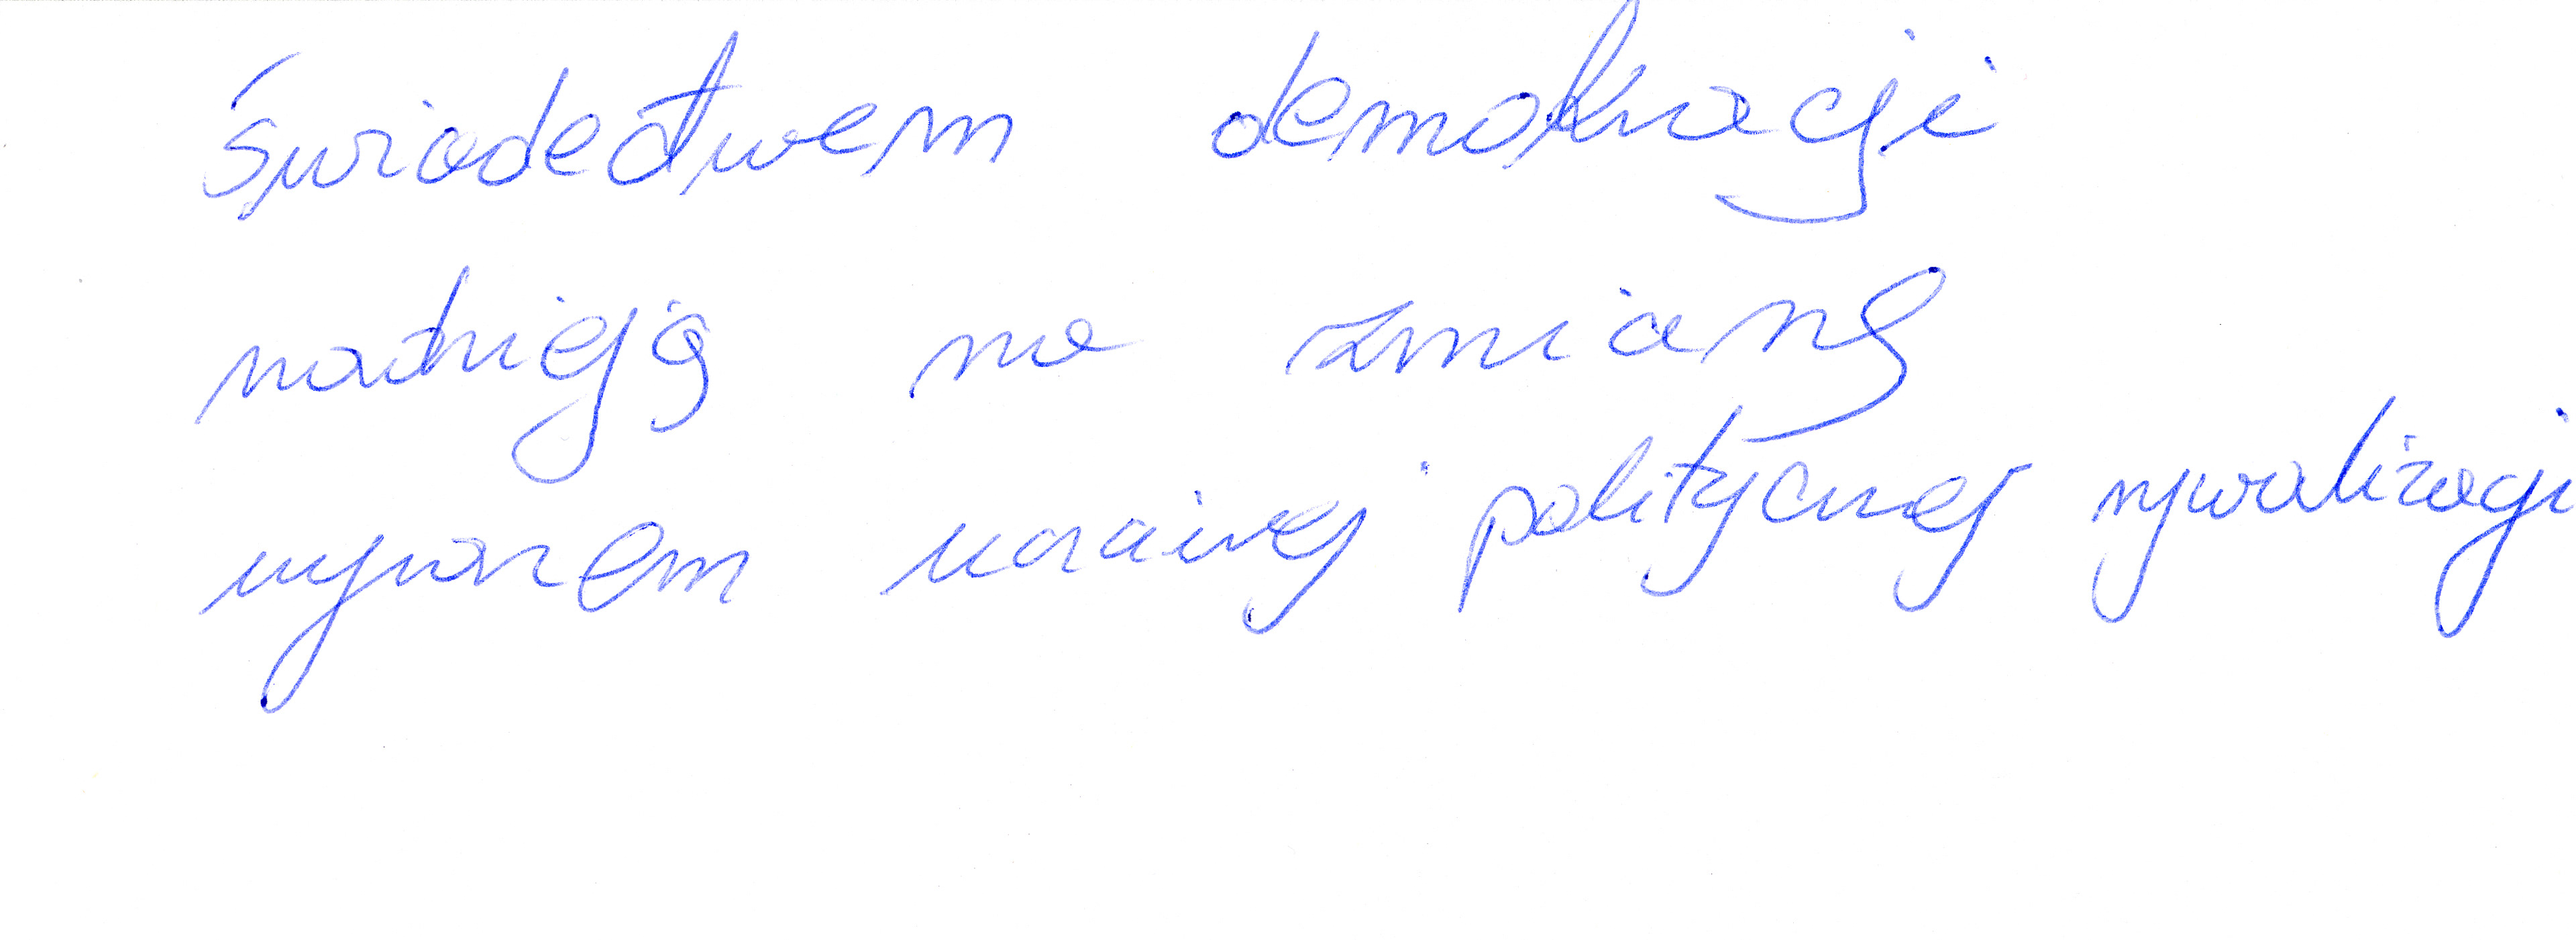 świadectwem demokracji
nadzieją na zmianę
wyrazem uczciwej politycznej rywalizacji